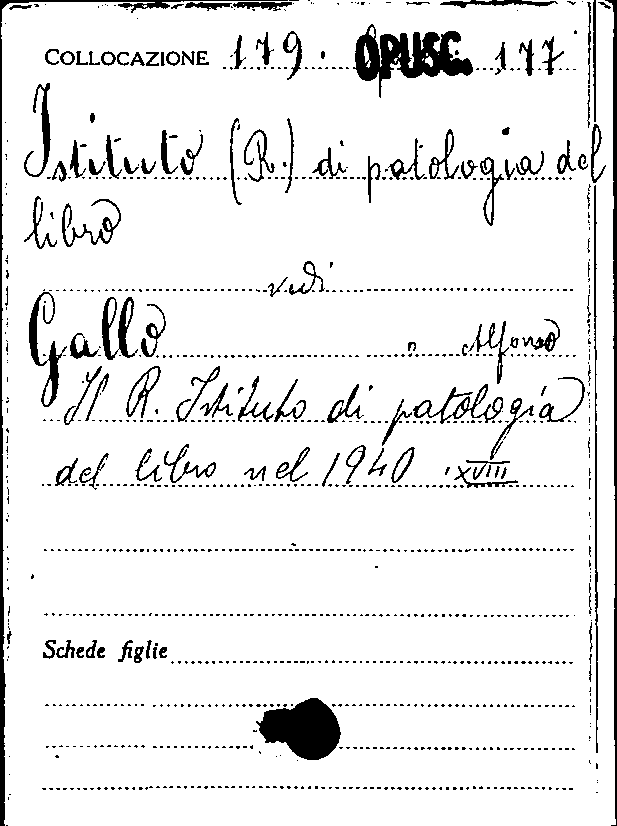 COLLOCAZIONE 179. OPUSC. 177
Istituto (R.) di patologia del
libro
vedi
Gallo " Alfonso
Il R. Istituto di patologia
del libro nel 1940 . XVIII
Schede figlie